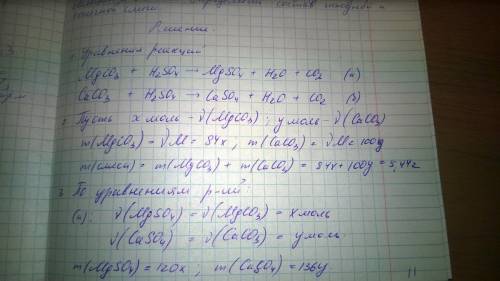 состав исходной и
Решение
1. Уравнения реакций
MgCO₃ + H₂SO₄ → MgSO₄ + H₂O + CO₂ (а)
CaCO₃ + H₂SO₄ → CaSO₄ + H₂O + CO₂ (б)
Пусть x моль - ν(MgCO₃); y моль - ν(CaCO₃)
m(MgCO₃) = νM = 84x, m(CaCO₃) = νM = 100y
m(смеси) = m(MgCO₃) + m(CaCO₃) = 84x + 100y = 5,44г
3. По уравнениям р-ий:
(а). ν(MgSO₄) = ν(MgCO₃) = x моль
ν(CaSO₄) = ν(CaCO₃) = y моль
m(MgSO₄) = 120x, m(CaSO₄) = 136y